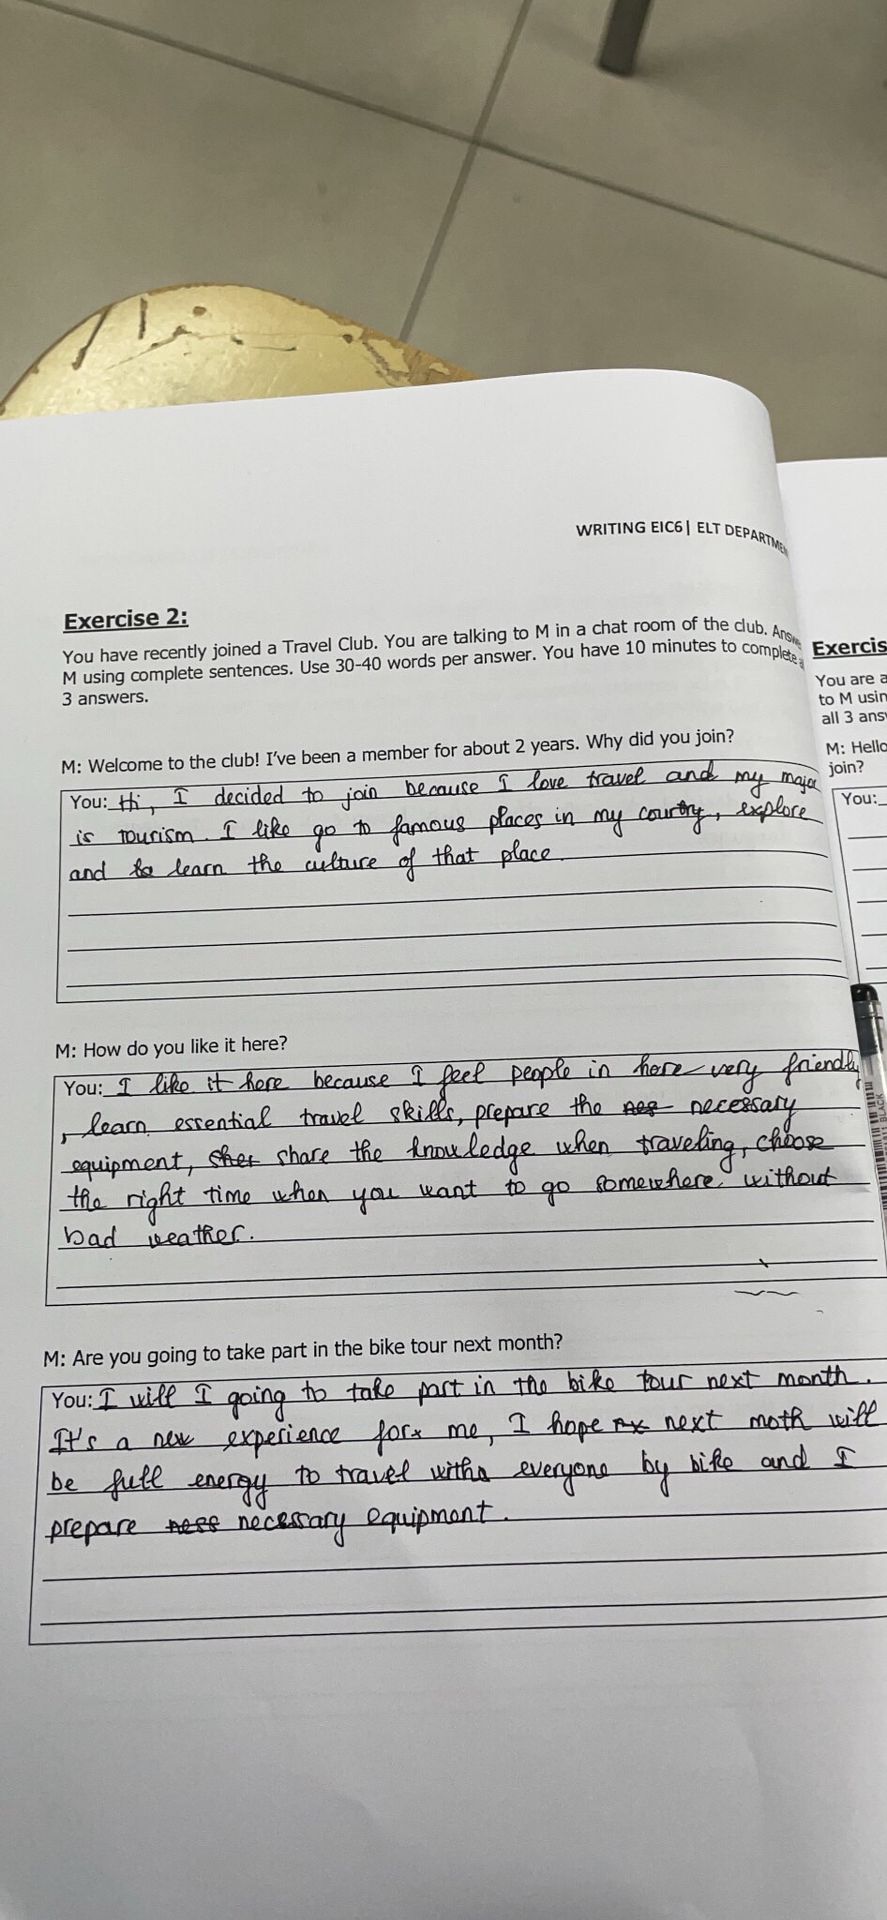 WRITING EIC6| ELT DEPARTME
Exercise 2:
You have recently joined a Travel Club. You are talking to M in a chat room of the club. Answe
M using complete sentences. Use 30-40 words per answer. You have 10 minutes to complete a
3 answers.
M: Welcome to the club! I've been a member for about 2 years. Why did you join?
You: Hi, I decided to join because I love travel and my major
is tourism. I like go to famous places in my country, explore
and to learn the culture of that place.
M: How do you like it here?
You: I like it here because I feel people in here very friendly
, learn essential travel skills, prepare the nes necessary
equipment, sher share the knowledge when traveling, choose
the right time when you want to go somewhere without
bad weather.
M: Are you going to take part in the bike tour next month?
You: I will I going to take part in the bike tour next month.
It's a new experience for me, I hope next moth will
be full energy to travel with everyone by bike and I
prepare ness necessary equipment.
Exercis
You are a
to M usin
all 3 ans
M: Hello
join?
You:
BLACK